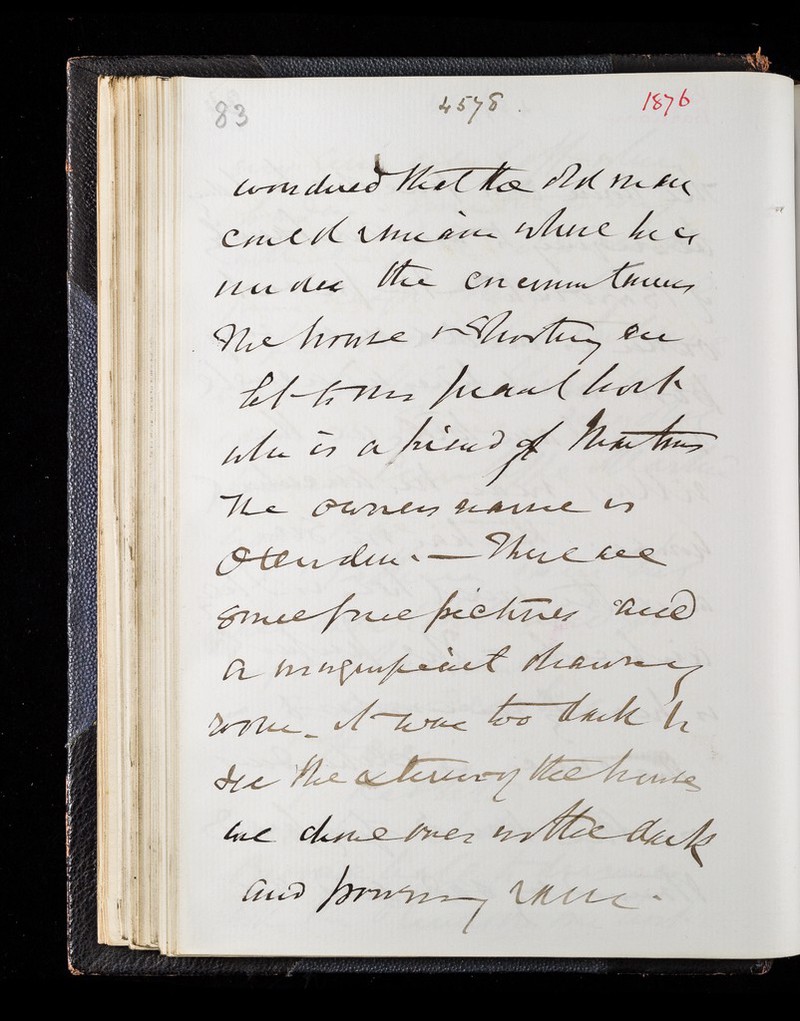 83 4578. 1876
wondered that the old man
could remain where he is
under the circumstances
The house & shooting are
let to Mr
who is a friend of
The owners name is
Oxenden. — There are
some fine pictures and
a magnificent drawing
room_ it was too dark to
see the exterior of the house
we drove over in the dark
and pouring rain.